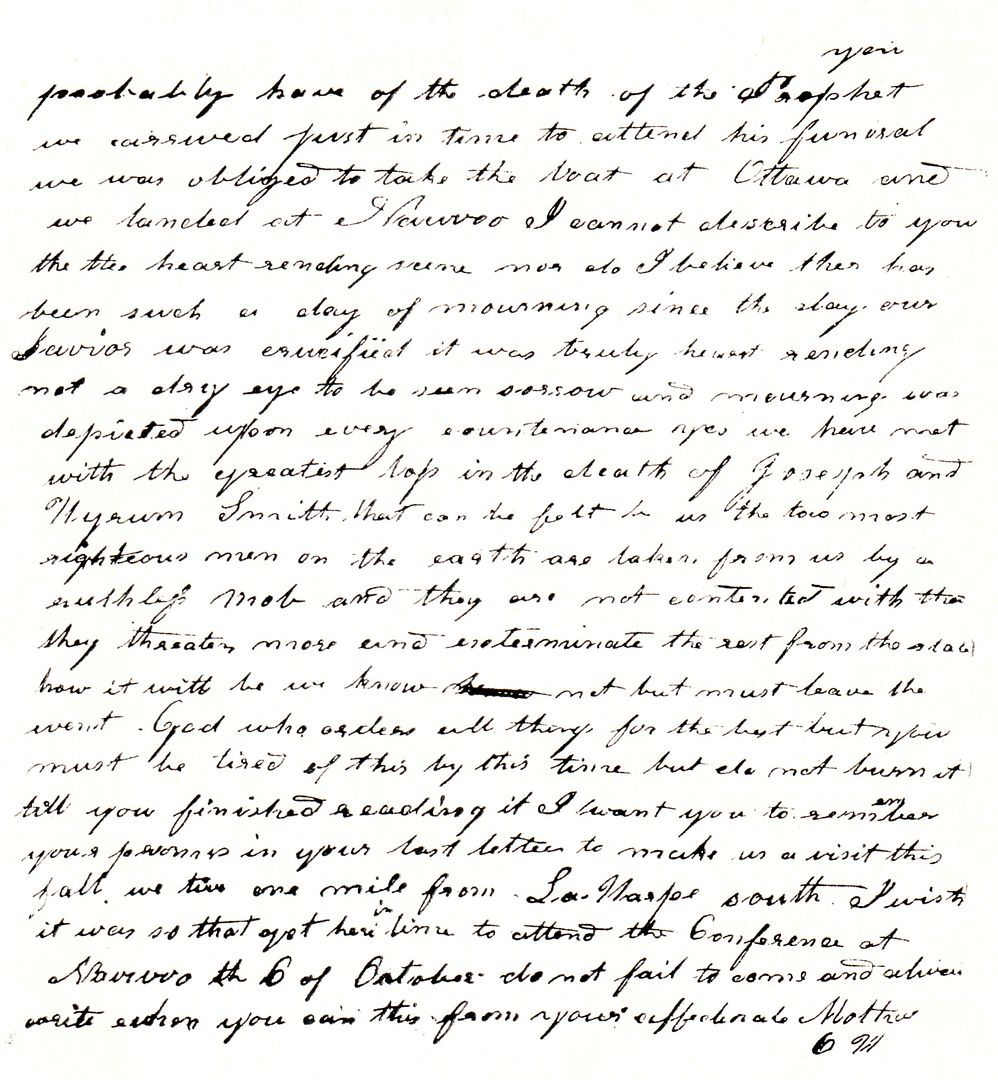 you
probably have of the death of the Prophet
we arrived just in time to attend his funeral
we was obliged to take the boat at Ottawa and
we landed at Nauvoo I cannot describe to you
the the heart rending scene nor do I believe ther has
been such a day of mourning since the day our
Savior was crucified it was truly heart rending
not a drey eye to be seen sorrow and mourning was
depicted upon every countenance yes we have met
with the greatest loss in the death of Joseph and
Hyrum Smith that can be felt be us the two most
righteous men on the earth are taken from us by a
ruthless mob and they are not contented with the
they threaten more and exterminate the rest from the state
how it will be we know not but must leave the
event God who orders all things for the best but you
must be tired of this by this time but do not burn it
till you finished reading it I want you to remember
your promis in your last letter to make us a visit this
fall we live one mile from La Harpe south I wish
it was so that get here in time to attend the Conference at
Nauvoo th 6 of October do not fail to come and
write when you can this from your affectionate Mother